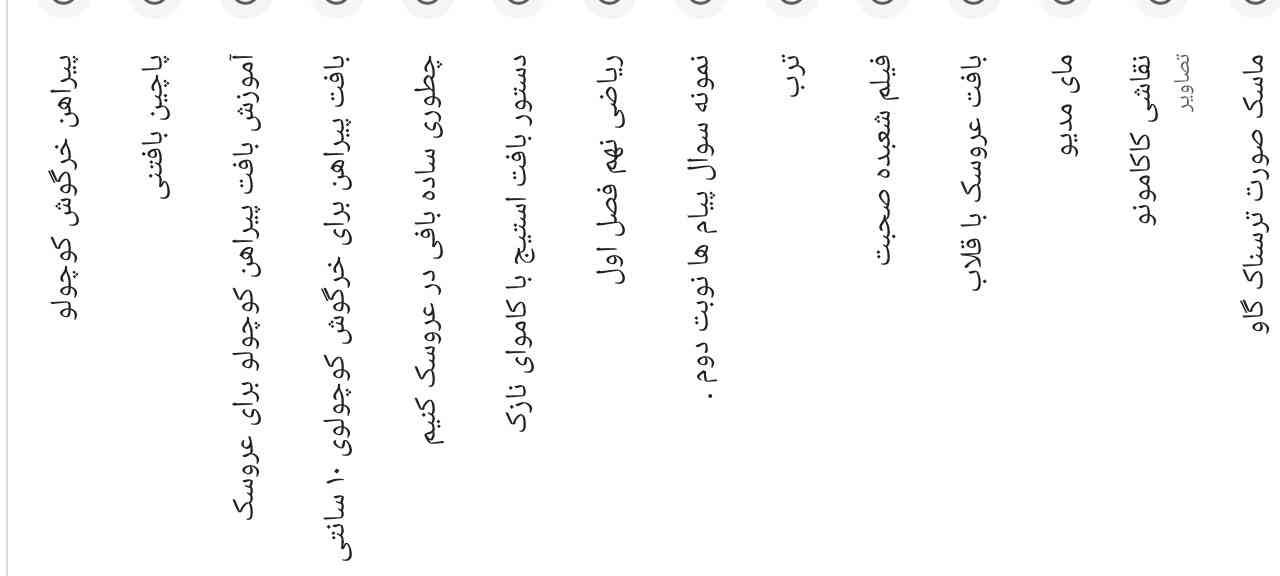 پیراهن خرگوش کوچولو
پاچین بافتنی
آموزش بافت پیراهن کوچولو برای عروسک
بافت پیراهن برای خرگوش کوچولوی ۱۰ سانتی
چطوری ساده بافی در عروسک کنیم
دستور بافت استیچ با کاموای نازک
ریاضی نهم فصل اول
نمونه سوال پیام ها نوبت دوم .
ترب
فیلم شعبده صحبت
بافت عروسک با قلاب
مای مدیو
نقاشی کاکامونو
تصاویر
ماسک صورت ترسناک گاو